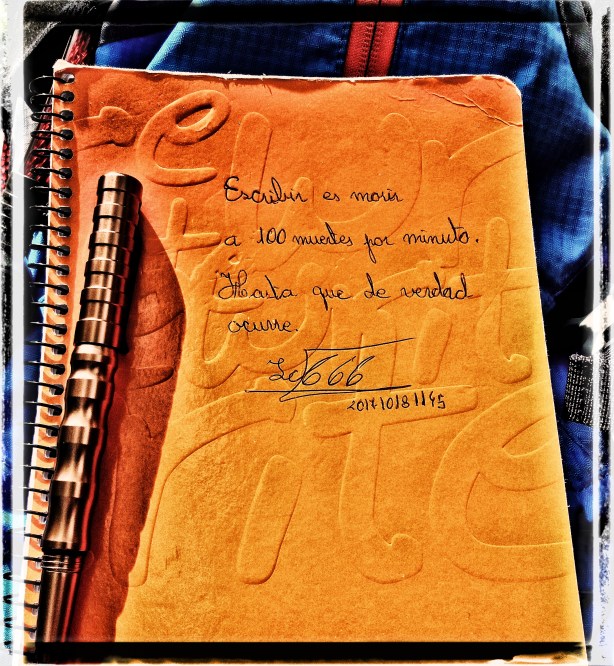 Escribir es morir
a 100 muertes por minuto.
Hasta que de verdad
ocurre.
666
201710181145